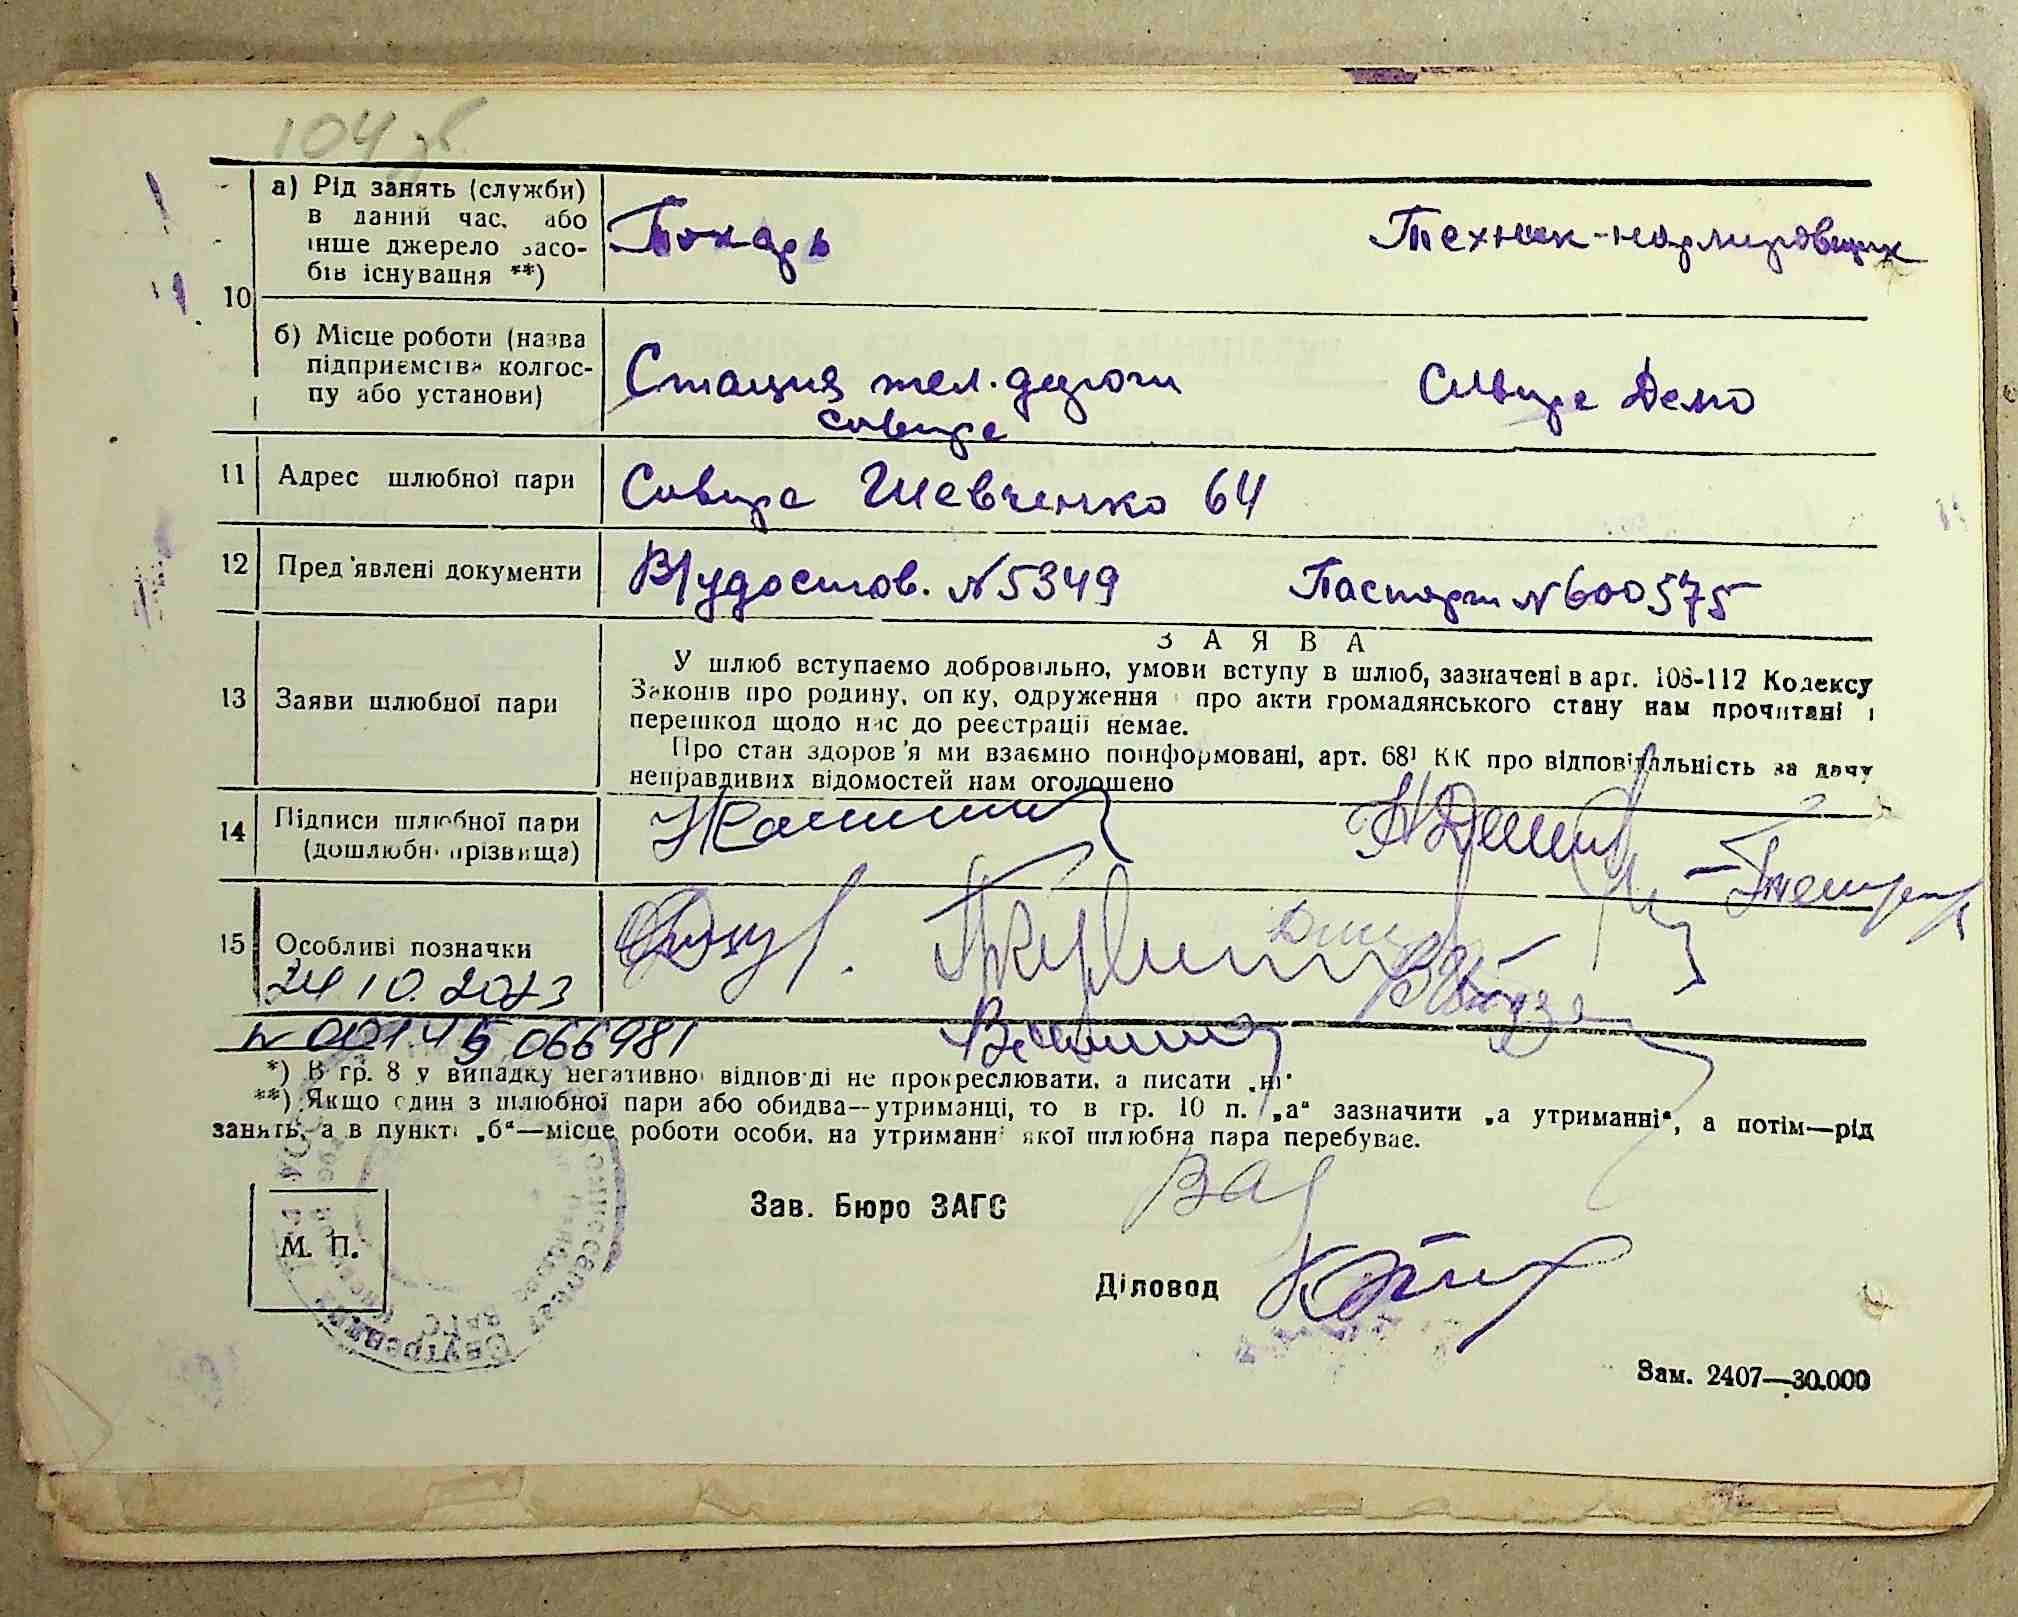 104 зв
10
а) Рід занять (служби)
в даний час, або
інше джерело засо-
бів існування **)
Токарь
Техник-нормировщик
б) Місце роботи (назва
підприємства колгос-
пу або установи)
Станция жел. дороги
Сквира
Сквира Депо
11 Адрес шлюбної пари
Сквира Шевченко 64
12 Пред'явлені документи
В/удостов. N 5349
Паспорт N 600575
ЗАЯВА
13 Заяви шлюбної пари
У шлюб вступаємо добровільно, умови вступу в шлюб, зазначені в арт. 108-112 Кодексу
Законів про родину, опіку, одруження і про акти громадянського стану нам прочитані і
перешкод щодо нас до реєстрації немає.
Про стан здоров'я ми взаємно поінформовані, арт. 68¹ КК про відповідальність за дачу
неправдивих відомостей нам оголошено
14 Підписи шлюбної пари
(дошлюбні прізвища)
15 Особливі позначки
24 10. 2023
N 00145 066981
*) В гр. 8 у випадку негативної відповіді не прокреслювати, а писати „ні"
**) Якщо один з шлюбної пари або обидва—утриманці, то в гр. 10 п. „а" зазначити „а утриманні", а потім—рід
занять, а в пункті „б"—місце роботи особи, на утриманні якої шлюбна пара перебуває.
М. П.
Зав. Бюро ЗАГС
Діловод
Зам. 2407—30.000